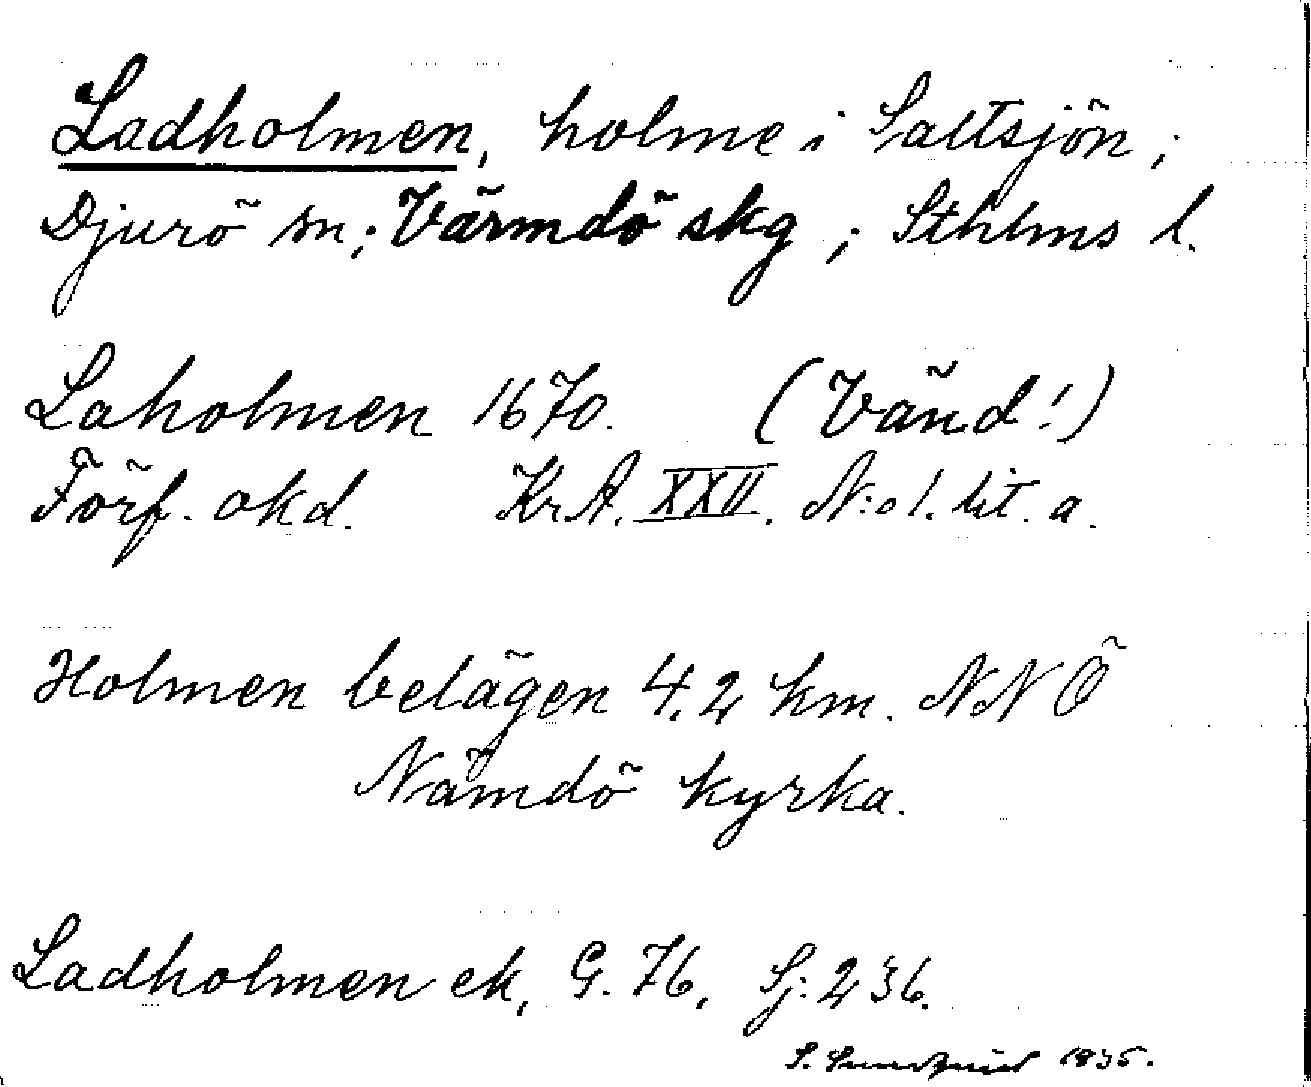 Ladholmen, holme i Saltsjön;
Djurö sn; Värmdö skg; Sthlms l.
Laholmen 1670. (Vänd!)
Förf. okd. Kr. A. XXII. N:o 1. lit. a.
Holmen belägen 4.2 km. NNÖ
Nämdö kyrka.
Ladholmen ek, G. 76, Sj: 236.
S. Sundqvist 1935.